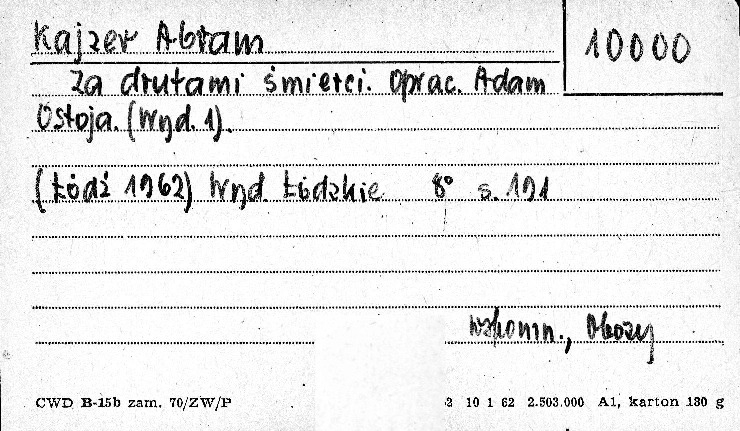 Kajzer Abram
10000
Za drutami śmierci. Oprac. Adam
Ostoja. (Wyd. 1).
(Łódź 1962) Wyd. Łódzkie 8° s. 191
wspomn., Obozy
CWD B-15b zam. 70/ZW/P
2 10 1 62 2.503.000 A1, karton 180 g